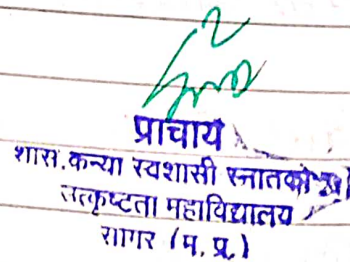 प्राचार्य
शास.कन्या स्वशासी स्नातको
उत्कृष्टता महाविद्यालय
सागर (म.प्र.)